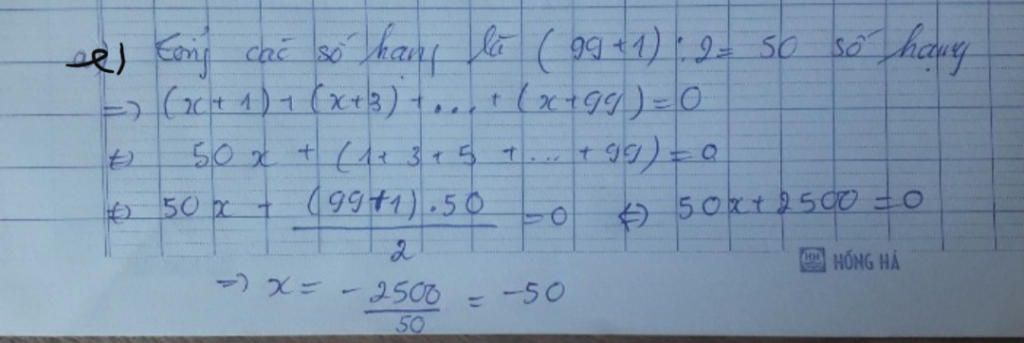 e) tổng các số hạng là (99+1):2= 50 số hạng
=> (x+1)+(x+3)+...+(x+99)=0
<=> 50x + (1+3+5+...+99)=0
<=> 50x + (99+1).50/2 =0 <=> 50x+2500=0
HỒNG HÀ
=> x= -2500/50 = -50